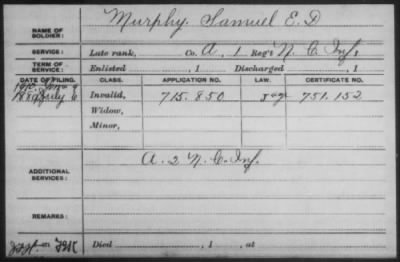 NAME OF SOLDIER: Murphy, Samuel E. D
SERVICE: Late rank, Co. A, 1 Reg't N. C. Inf,
TERM OF SERVICE: Enlisted , 1 Discharged , 1
DATE OF FILING. CLASS. APPLICATION NO. LAW. CERTIFICATE NO.
1889 July 6 Invalid, 715.850 751.152
Widow,
Minor,
ADDITIONAL SERVICES: A. 2 N. C. Inf.
REMARKS:
Died , 1 , at